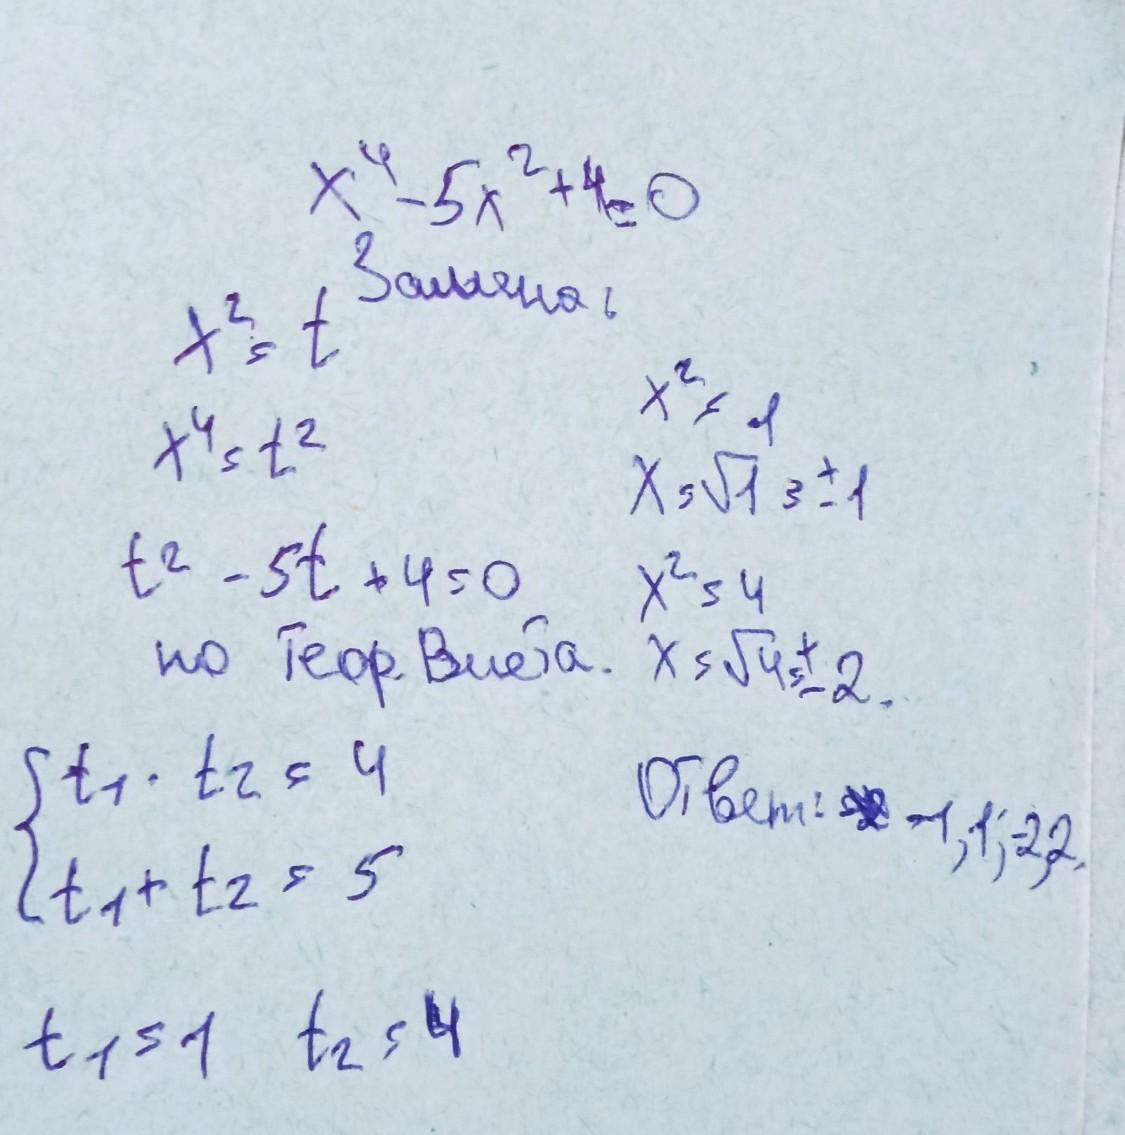 x⁴-5x²+4=0
Замена:
x²=t
x⁴=t²
t²-5t+4=0
по Теор. Виета.
{t₁·t₂=4
t₁+t₂=5
t₁=1 t₂=4
x²=1
x=√1=±1
x²=4
x=√4=±2.
Ответ: -1,1;-2,2.